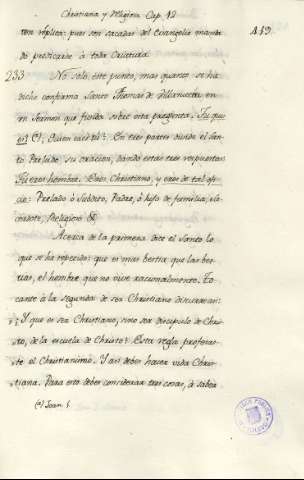 Christiana y Religiosa Cap. 12
419.
con réplica: pues son sacadas del Evangelio manda-
do predicarse à toda criatura.
233 No solo este punto, mas quanto se ha
dicho confirma Santo Thomas de Villanueva en
un Sermon que funda sobre esta pregunta. Tu quis
es? (*) ¿Quien eres tú? En tres partes divide el San-
to Prelado su oracion, dando estas tres respuestas
Tu eres hombre. Eres Christiano, y eres de tal ofi-
cio: Prelado ò Subdito, Padre, ò hijo de familia, Sa-
cerdote, Religioso &.
Acerca de la primera dice el Santo lo
que se ha repetido: que es mas bestia que las bes-
tias, el hombre que no vive racionalmente. To-
cante à la segunda de ser Christiano discurre asi:
"¿Y que es ser Christiano, sino ser discipulo de Chris-
"to, de la escuela de Christo? Esta regla profesas-
"te el Christianismo. Y asi debes hacer vida Chris-
"tiana. Para esto debes considerar tres cosas, à saber
(*) Joan 1.